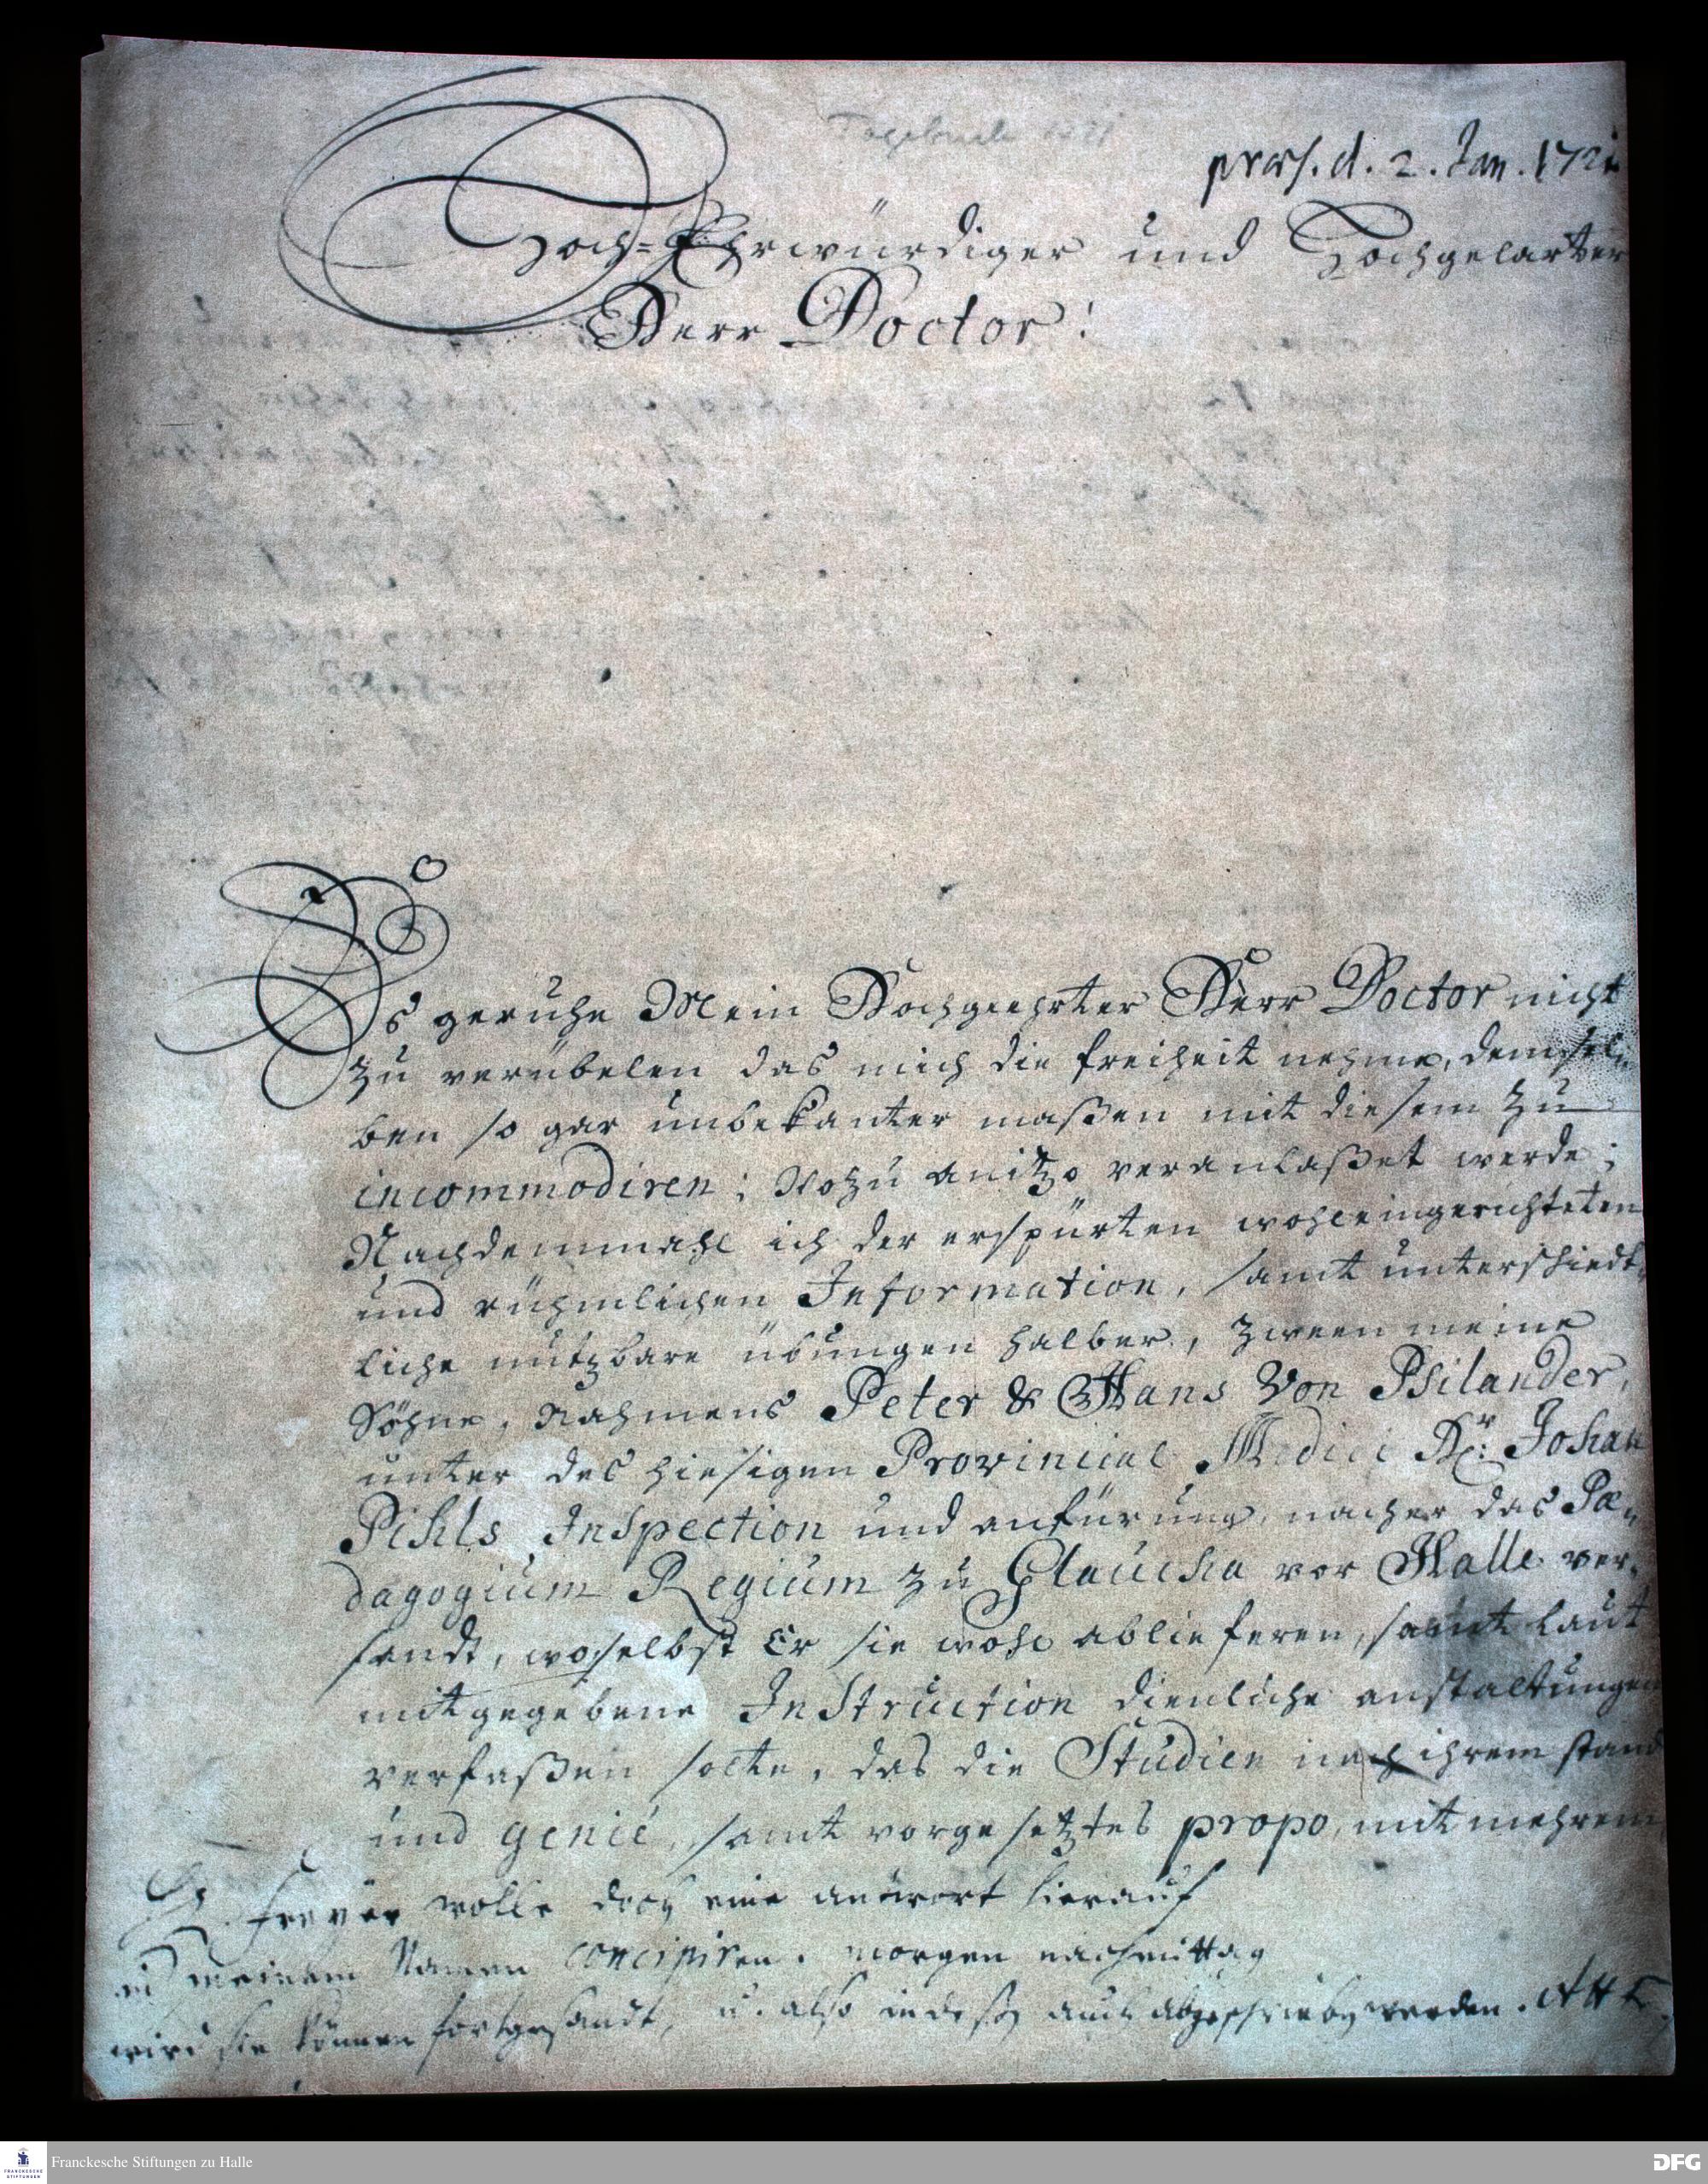 Tagebuch 1721
præs. d. 2. Jan. 1721
Hoch-Ehrwürdiger und Hochgelarter
Herr Doctor!
Es geruhe Mein Hochgeehrter Herr Doctor nicht
zu verübelen das mich die freiheit nehme, demsel-
ben so gar unbekanter maßen mit diesem zu
incommodiren; Wozu anitzo veranlaßet werde;
Nachdemmahl ich der erspürten wohleingerichteten
und rühmlichen Information, samt unterschied-
liche nutzbare übungen halber, zween meine
Söhne, Nahmens Peter & Hans Von Psilander,
unter des hiesigen Provincial Medici Hr: Johan
Pihls Inspection und anfürung, nacher das Pæ-
dagogium Regium zu Glaucha vor Halle ver-
sandt, woselbst Er sie wohl ablieferen, samt laut
mitgegebene Instruction dienliche anstaltungen
verfaßen solte, das die Studien nach ihrem stand
und genie, samt vorgesetztes propo, mit mehrem
H. Freyer wolle doch eine antwort hierauf
in meinem Namen concipiren. morgen nachmittag
wird sie können fortgesandt, u. also indeßen auch abgeschrieben werden. AHF.
Franckesche Stiftungen zu Halle
FRANCKESCHE
STIFTUNGEN
DFG